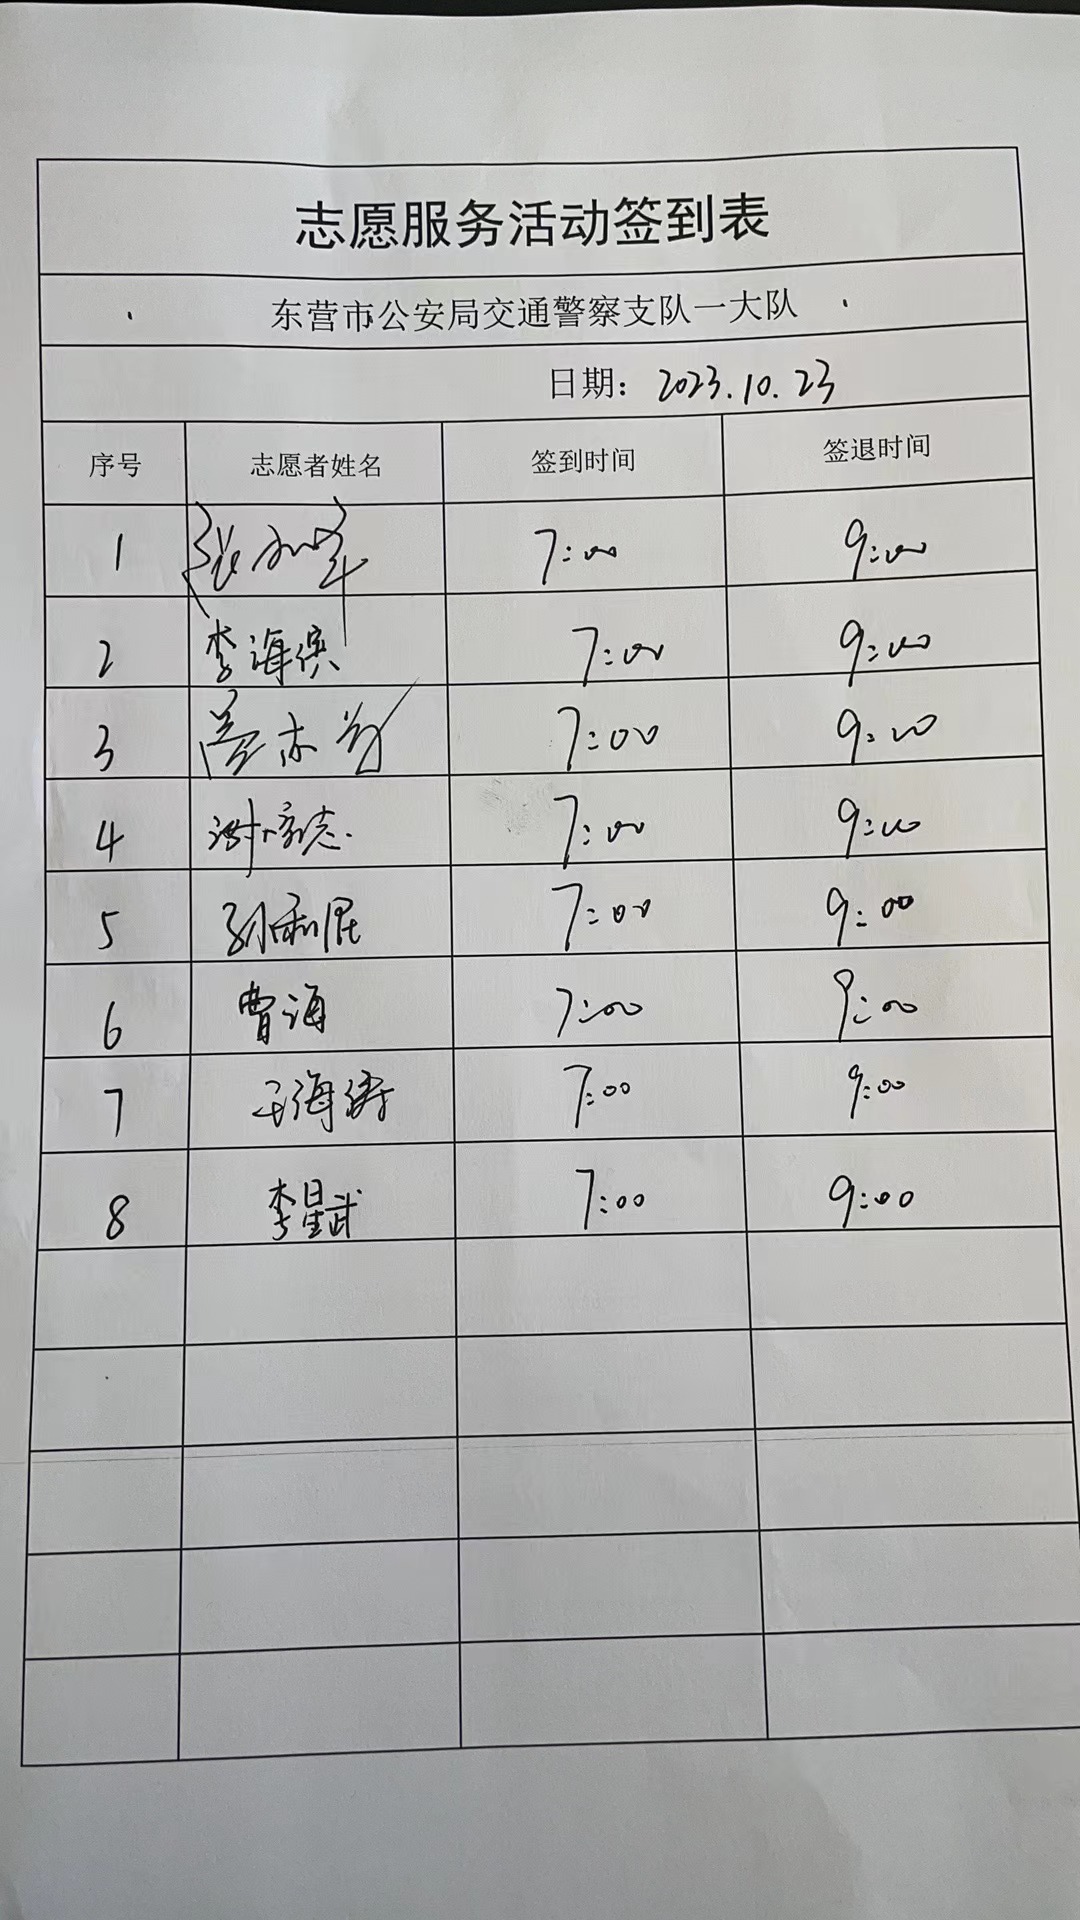 志愿服务活动签到表
东营市公安局交通警察支队一大队
日期： 2023.10.23
序号 志愿者姓名 签到时间 签退时间
1 7:00 9:00
2 李海滨 7:00 9:00
3 7:00 9:00
4 谢家志 7:00 9:00
5 孙利民 7:00 9:00
6 曹海 7:00 9:00
7 王海涛 7:00 9:00
8 李星武 7:00 9:00